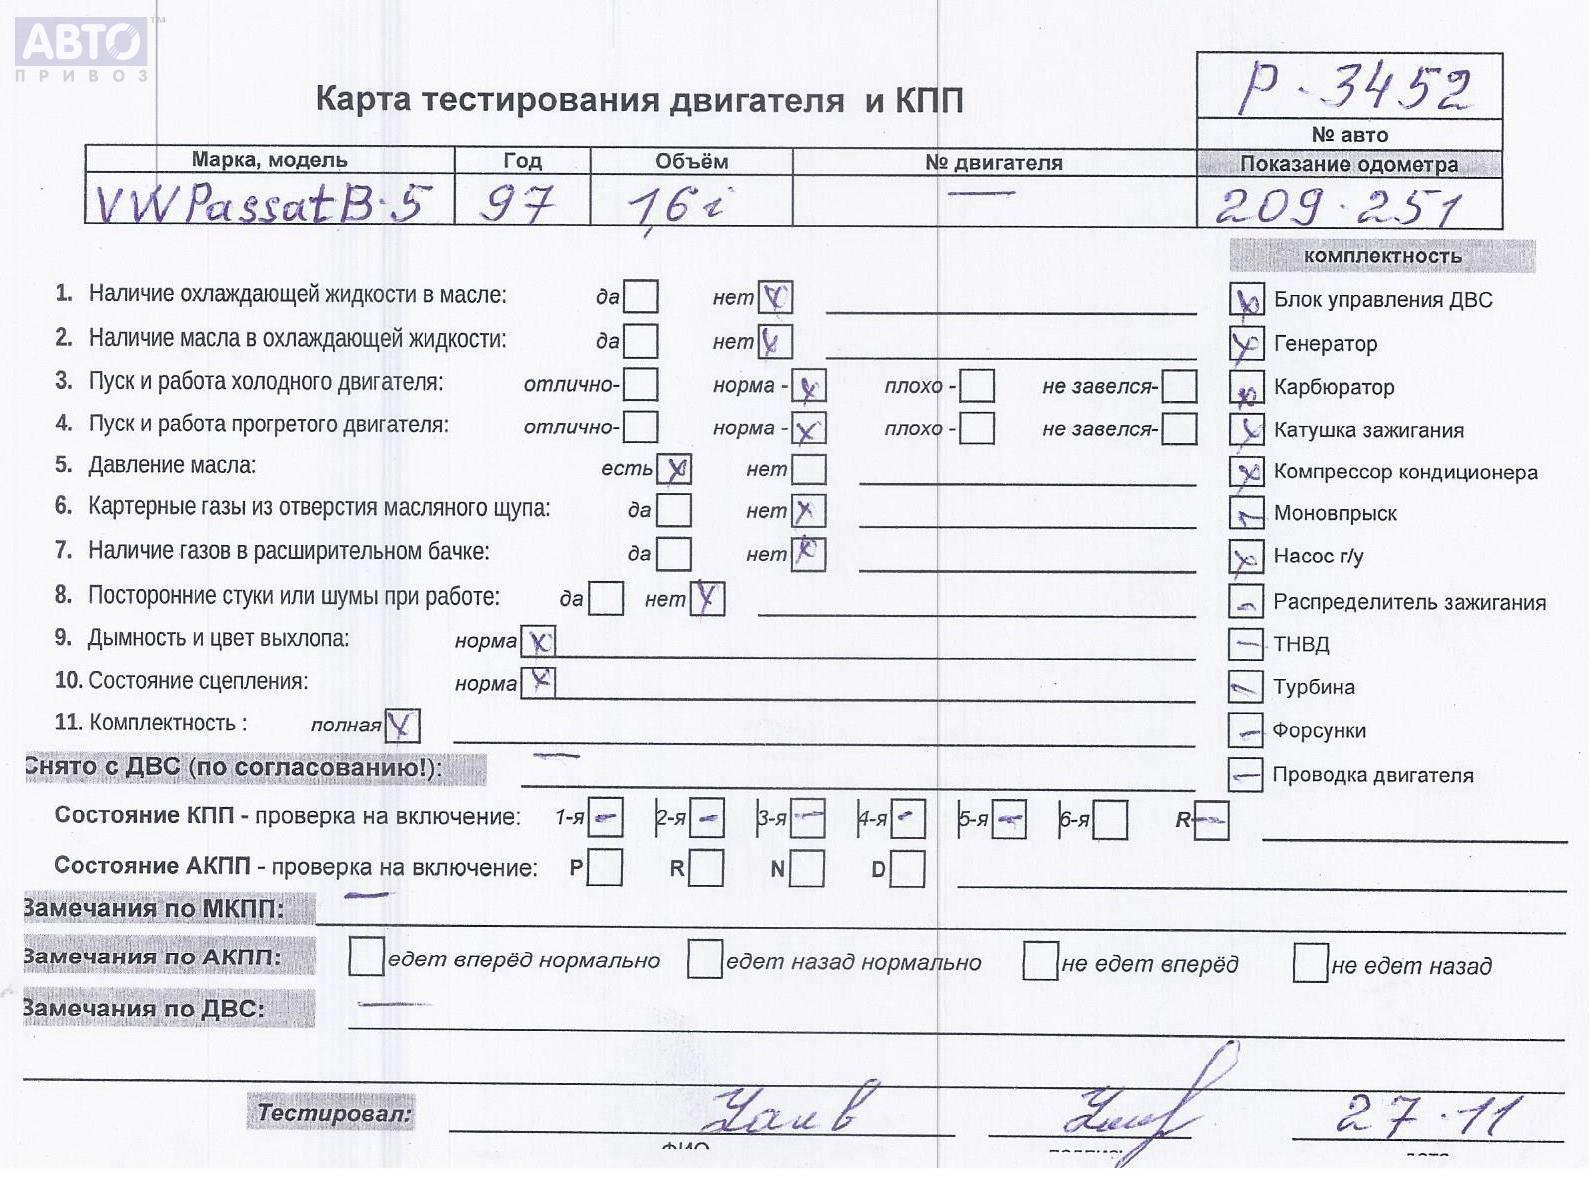 АВТО™
ПРИВОЗ
Карта тестирования двигателя и КПП
Р-3452
№ авто
Марка, модель Год Объём № двигателя Показание одометра
VW Passat B·5 97 1,6 i — 209·251
комплектность
1. Наличие охлаждающей жидкости в масле: да нет
Блок управления ДВС
2. Наличие масла в охлаждающей жидкости: да нет
Генератор
3. Пуск и работа холодного двигателя: отлично- норма - плохо - не завелся-
Карбюратор
4. Пуск и работа прогретого двигателя: отлично- норма - плохо - не завелся-
Катушка зажигания
5. Давление масла: есть нет
Компрессор кондиционера
6. Картерные газы из отверстия масляного щупа: да нет
Моновпрыск
7. Наличие газов в расширительном бачке: да нет
Насос г/у
8. Посторонние стуки или шумы при работе: да нет
Распределитель зажигания
9. Дымность и цвет выхлопа: норма
ТНВД
10. Состояние сцепления: норма
Турбина
11. Комплектность : полная
Форсунки
Снято с ДВС (по согласованию!): —
Проводка двигателя
Состояние КПП - проверка на включение: 1-я 2-я 3-я 4-я 5-я 6-я R-
Состояние АКПП - проверка на включение: P R N D
Замечания по МКПП: —
Замечания по АКПП: едет вперёд нормально едет назад нормально не едет вперёд не едет назад
Замечания по ДВС: —
Тестировал: 27·11
ФИО подпись дата